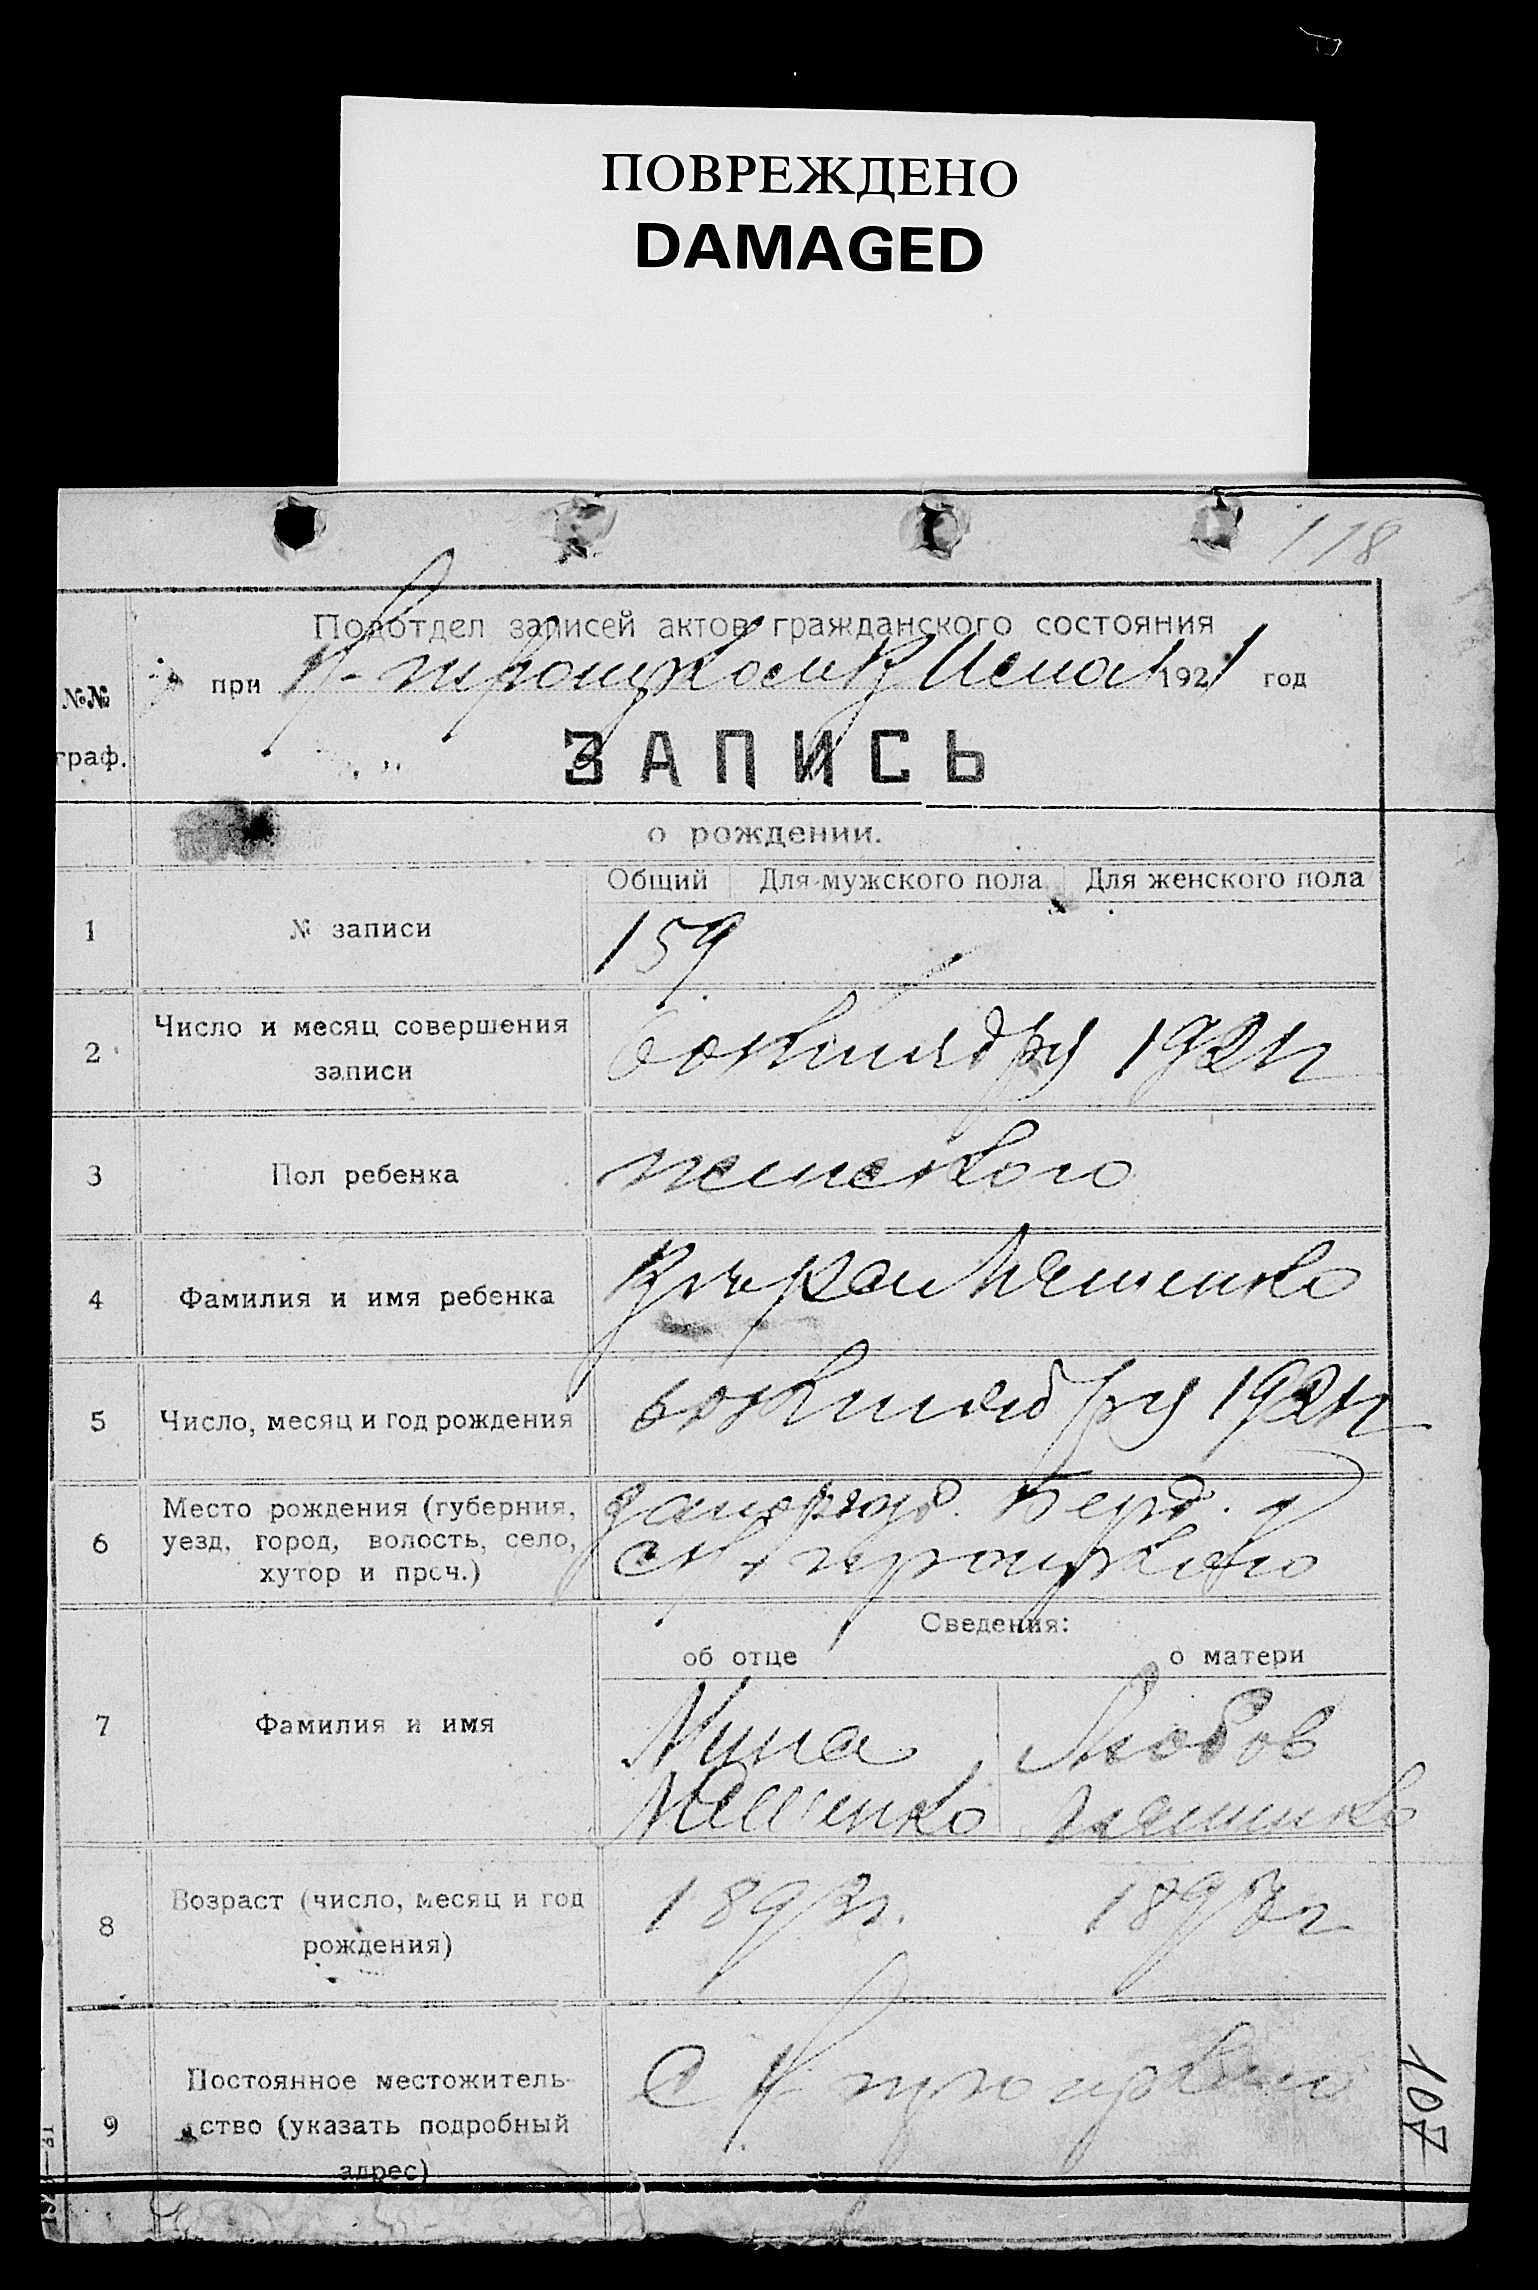 ПОВРЕЖДЕНО
DAMAGED
118
Подотдел записей актов гражданского состояния
№№ граф.
при 1921 год
ЗАПИСЬ
о рождении.
Общий Для мужского пола Для женского пола
1 № записи 159
2 Число и месяц совершения записи 6 октября 1921 г
3 Пол ребенка женского
4 Фамилия и имя ребенка
5 Число, месяц и год рождения 6 октября 1921 г
6 Место рождения (губерния, уезд, город, волость, село, хутор и проч.) Берд. у
Сведения:
об отце о матери
7 Фамилия и имя Мина Любов
8 Возраст (число, месяц и год рождения) 1893 г. 1897 г
9 Постоянное местожительство (указать подробный адрес) С
107